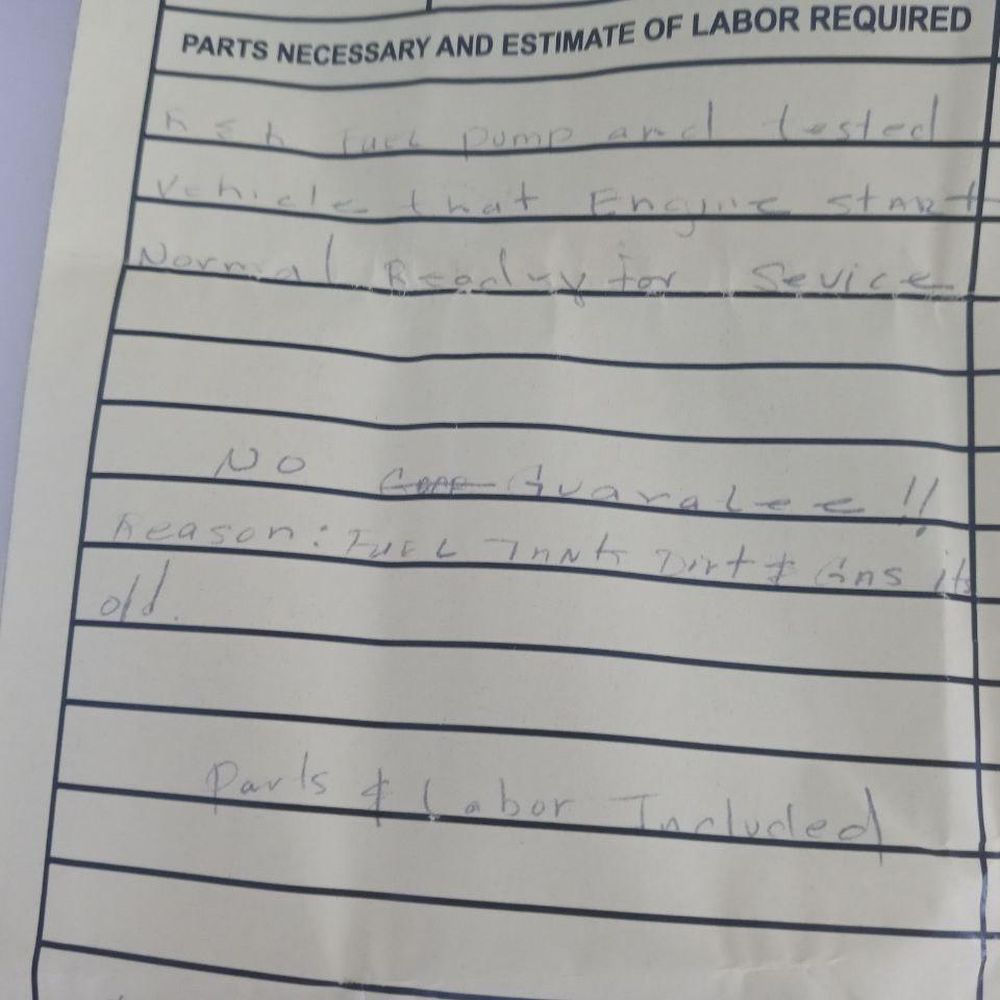 PARTS NECESSARY AND ESTIMATE OF LABOR REQUIRED
R & R FUEL PUMP and tested
Vehicle that Engine start
Normal Ready for Sevice
NO Guaratee !!
Reason: FUEL TANK Dirt & Gas its
old.
Parts & Labor Included